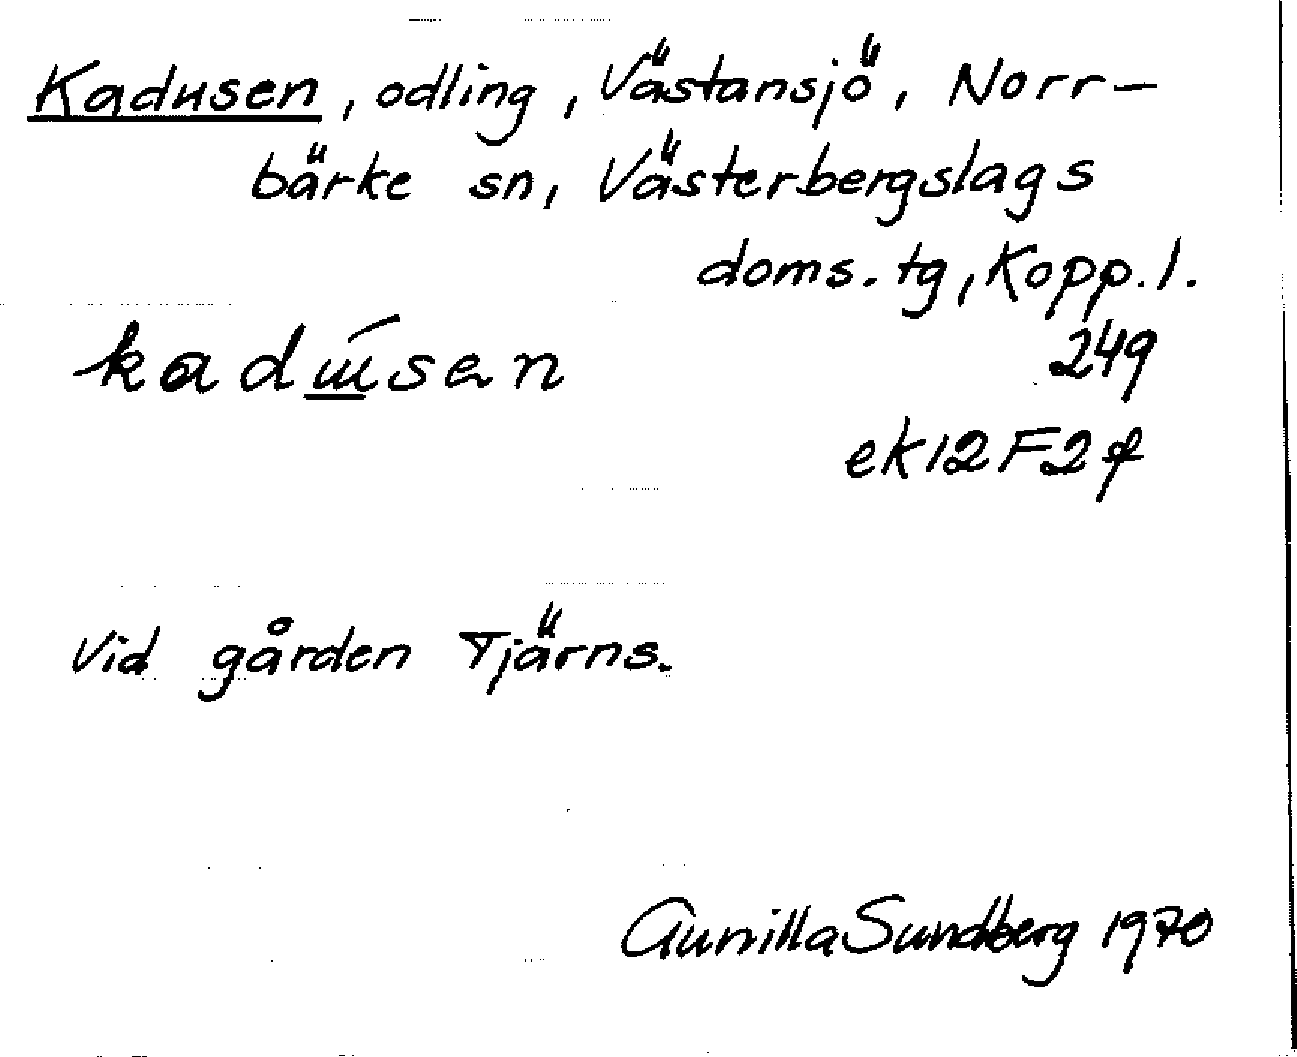 Kadusen, odling, Västansjö, Norr-
bärke sn, Västerbergslags
doms. tg, Kopp. l.
249
ek 12 F 2 f
Vid gården Tjärns.
Gunilla Sundberg 1970